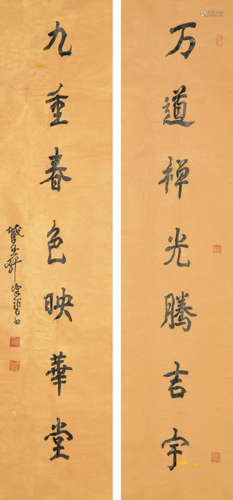 万道禅光腾吉宇
九重春色映華堂